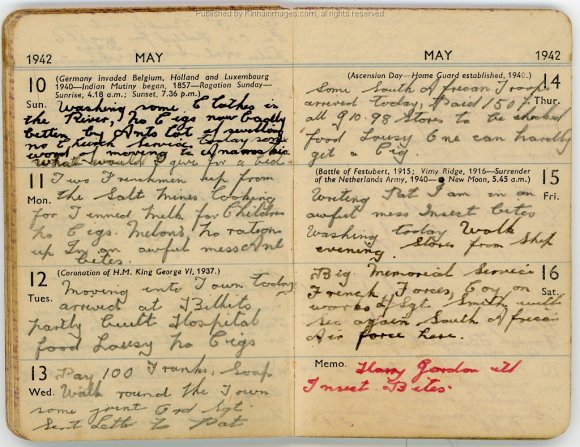 Published by Kinnaimages.com, all rights reserved.
1942 MAY
10 (Germany invaded Belgium, Holland and Luxembourg
1940—Indian Mutiny began, 1857—Rogation Sunday—
Sun. Sunrise, 4.18 a.m.; Sunset, 7.36 p.m.)
Washing some Clothes in
the River, No Cigs now badly
bitten by Ants Lot of swelling
no Church Service today some
word of moving to
What would I give for a bed.
11 Two Frenchmen up from
Mon. the Salt mines looking
for Tinned milk for Children
No Cigs. Melons, No rations
up In an awful mess
bites.
12 (Coronation of H.M. King George VI, 1937.)
Tues. Moving into Town today
arrived at Billets
partly built Hospital
food Lousy No Cigs
13 Pay 100 Franks, Soap
Wed. Walk round the Town
some joint Ord Sgt.
Sent Lette to Pat
MAY 1942
(Ascension Day—Home Guard established, 1940.) 14
Thur.
Some South African Troops
arrived today, Paid 150
all 910.98 Stores to be
food Lousy One can hardly
get a Cig.
(Battle of Festubert, 1915; Vimy Ridge, 1916—Surrender 15
of the Netherlands Army, 1940—● New Moon, 5.45 a.m.) Fri.
Writing Pat I am in an
awful mess Insect bites
Washing today Walk
evening. Stores from Ship
16
Sat.
Big Memorial Service
French Forces, Coy on
works L/Sgt Smith, with
see again South African
Air force here.
Memo. Harry Gordon ill
Insect Bites.